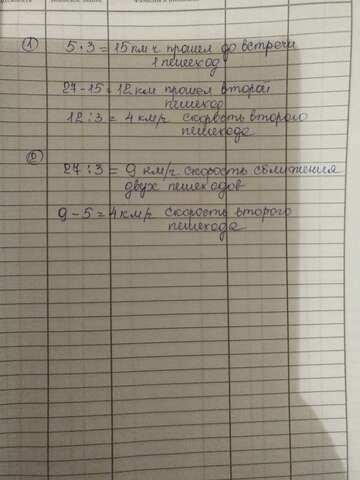 ① 5·3 = 15 км ч прошел до встречи
1 пешеход
27-15=12 км прошел второй
пешеход
12:3 = 4 км/ч скорость второго
пешехода
② 27:3 = 9 км/ч скорость сближения
двух пешеходов
9-5=4 км/ч скорость второго
пешехода